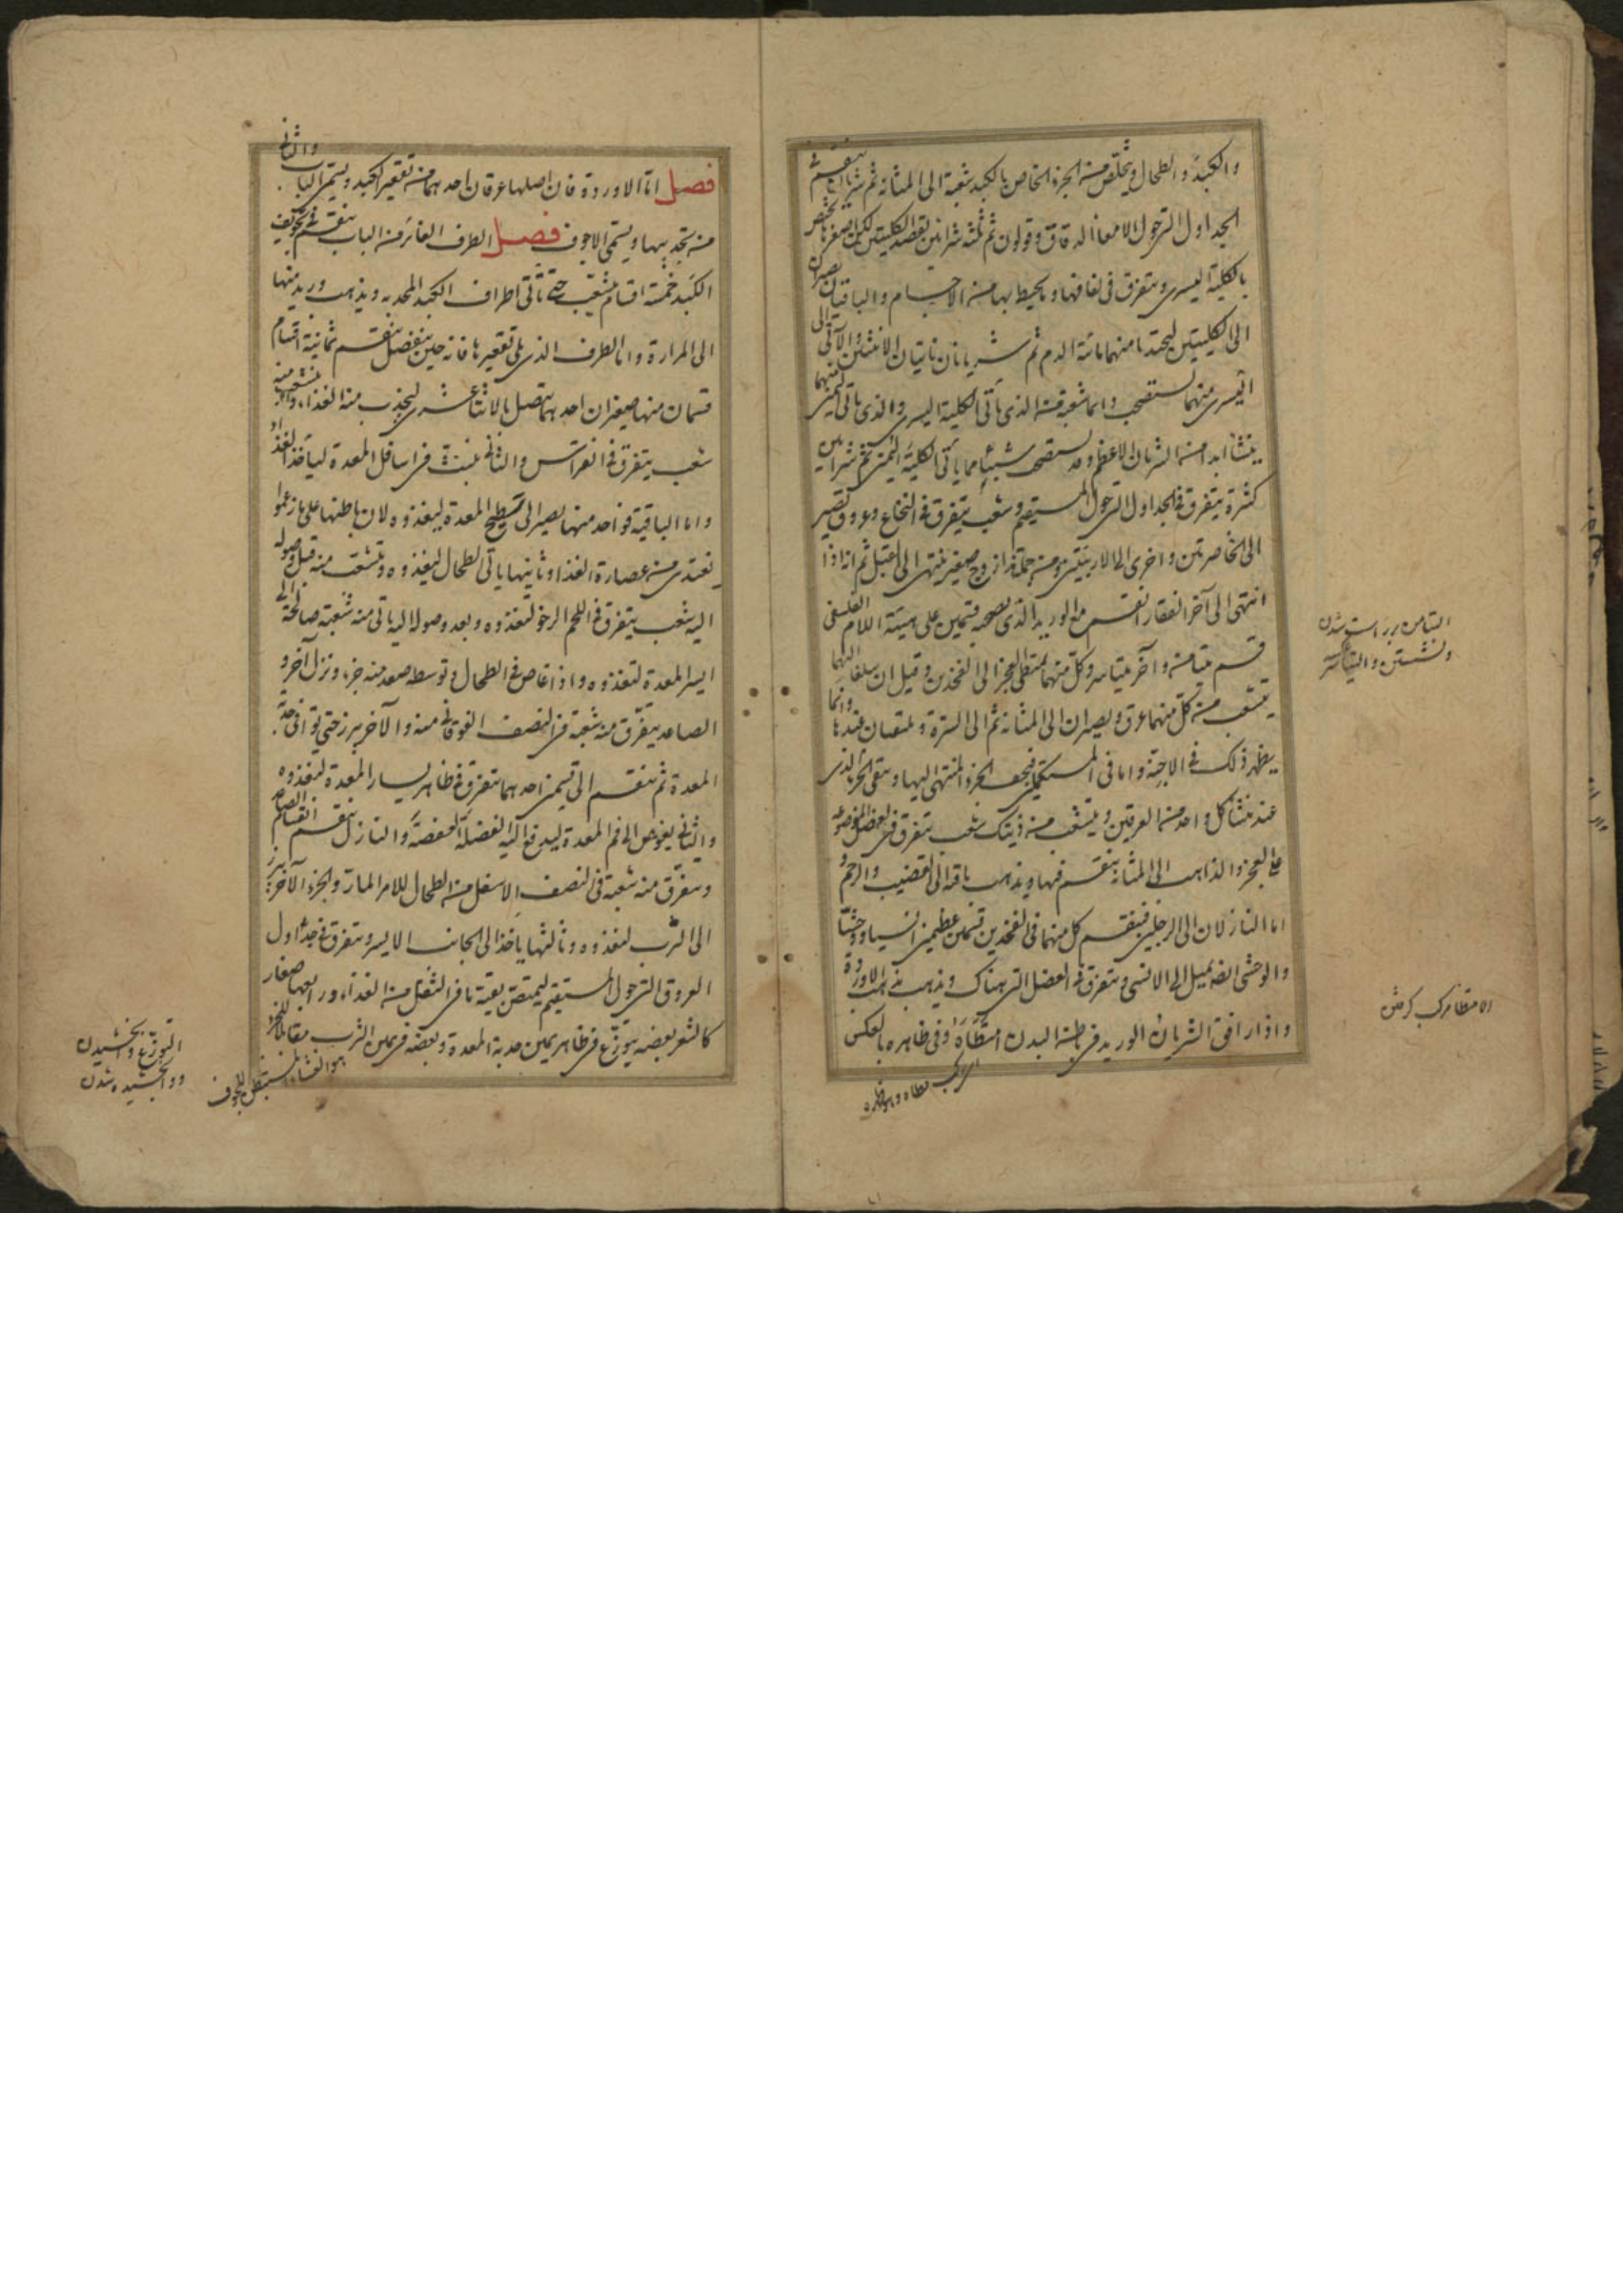 والكبد والطحال ويتخلص من الجزء الخاص بالكبد شعبة الى المثانة ثم شريان ينقسم في
الجداول التي حول الامعاء الدقاق وقولون ثم ثلثة شرايين تقصد الكليتين لكن اصغرها يختص
بالكلية اليسرى ويتفرق في لفافتها وما يحيط بها من الاجسام والباقيتان تصيران
الى الكليتين ليجتذبا منهما مائية الدم ثم شريانان ناتيان الانثيين والآتي الى
اليسرى منهما يستصحب دائما شعبة من الذي يأتي الكلية اليسرى والذي يأتي اليمنى منهما
ينشأ ابدا من الشريان الاعظم وقد يستصحب شيئا مما يأتي الكلية اليمنى ثم شرايين
كثيرة يتفرق في الجداول التي حول المستقيم وشعب يتفرق في النخاع وعروق تصير
الى الخاصرتين واخرى الى الاربيتين ومن جملة هذا زوج صغير ينتهي الى القبل ثم انه اذا
انتهى الى آخر الفقار انقسم مع الوريد الذي يصحبه قسمين على هيئة اللام اليونانى
قسم يتيامن وآخر يتياسر وكل منهما يمتطي العجز الى الفخذين وقبل ان يبلغا اليهما
يتشعب من كل منهما عرق ويصيران الى المثانة ثم الى السرة ويلتقيان عندها وانما
يظهر ذلك في الاجنة واما في المستكملين فيجف الجزء المنتهي اليها ويبقى الجزء الذي
عند منشأ كل واحد من العرقين ويتشعب من ذينك شعب يتفرق في العضل الموضوعة
على العجز والذاهب الى المثانة ينقسم فيها ويذهب باقيه الى القضيب والرحم و
اما النازلان الى الرجلين فينقسم كل منهما في الفخذين قسمين عظيمين انسيا ووحشيا
والوحشي ايضا يميل الى الانسي ويتفرق في العضل التي هناك ويذهب مذهب الاوردة
واذا رافق الشريان الوريد في باطن البدن امتطاه وفي ظاهره بالعكس
التيامن بر راست شدن
ونشستن والتياسر
الامتطا مركب كرفتن
فصل اما الاوردة فان اصلها عرقان احدهما من تقعير الكبد ويسمى الباب والثاني
من تحديبها ويسمى الاجوف فصل الطرف الغائر من الباب ينقسم في تجويف
الكبد خمسة اقسام يتشعب حتى تأتي اطراف الكبد المحدبة ويذهب وريد منها
الى المرارة واما الطرف الذي يلي تقعيرها فانه حين ينفصل ينقسم ثمانية اقسام
قسمان منها صغيران احدهما يتصل بالاثنا عشري ليجذب منه الغذاء
شعب يتفرق في انقراس والثاني ينبث في اسافل المعدة ليأخذ الغذاء
واما الباقية فواحد منها يصير الى تسطيح المعدة ليغذوه لان باطنها على ما زعموا
يغتذي من عصارة الغذا وثانيها يأتي الطحال ليغذوه ويتشعب منه قبل وصوله
اليه شعب يتفرق في اللحم الرخو لتغذوه وبعد وصوله اليه يأتي منه شعبة صالحة الى
ايسر المعدة لتغذوه واذا غاص في الطحال وتوسط صعد منه جزء ونزل آخر و
الصاعد يتفرق منه شعبة في النصف الفوقاني منه والآخر يبرز حتى يوافي حدبة
المعدة ثم ينقسم الى قسمين احدهما يتفرق في ظاهر يسار المعدة ليغذوه
والثاني يغوص الى فم المعدة ليدفع اليه الفضلة العفصة والنازل ينقسم انقسام الصاعد
ويتفرق منه شعبة في النصف الاسفل من الطحال للامر المار والجزء الآخر يبرز
الى الثرب لتغذوه وثالثها يأخذ الى الجانب الايسر ويتفرق في جداول
العروق التي حول المستقيم ليمتص بقية ما في الثفل من الغذاء ورابعها صغار
كالشعر بعضه يتوزع في ظاهر يمين حدبة المعدة وبعضه في يمين الثرب مقابلا للجزء
هو الغشاء المستبطن للجوف
التوزع وابخشيدن
ووابخشيده شدن